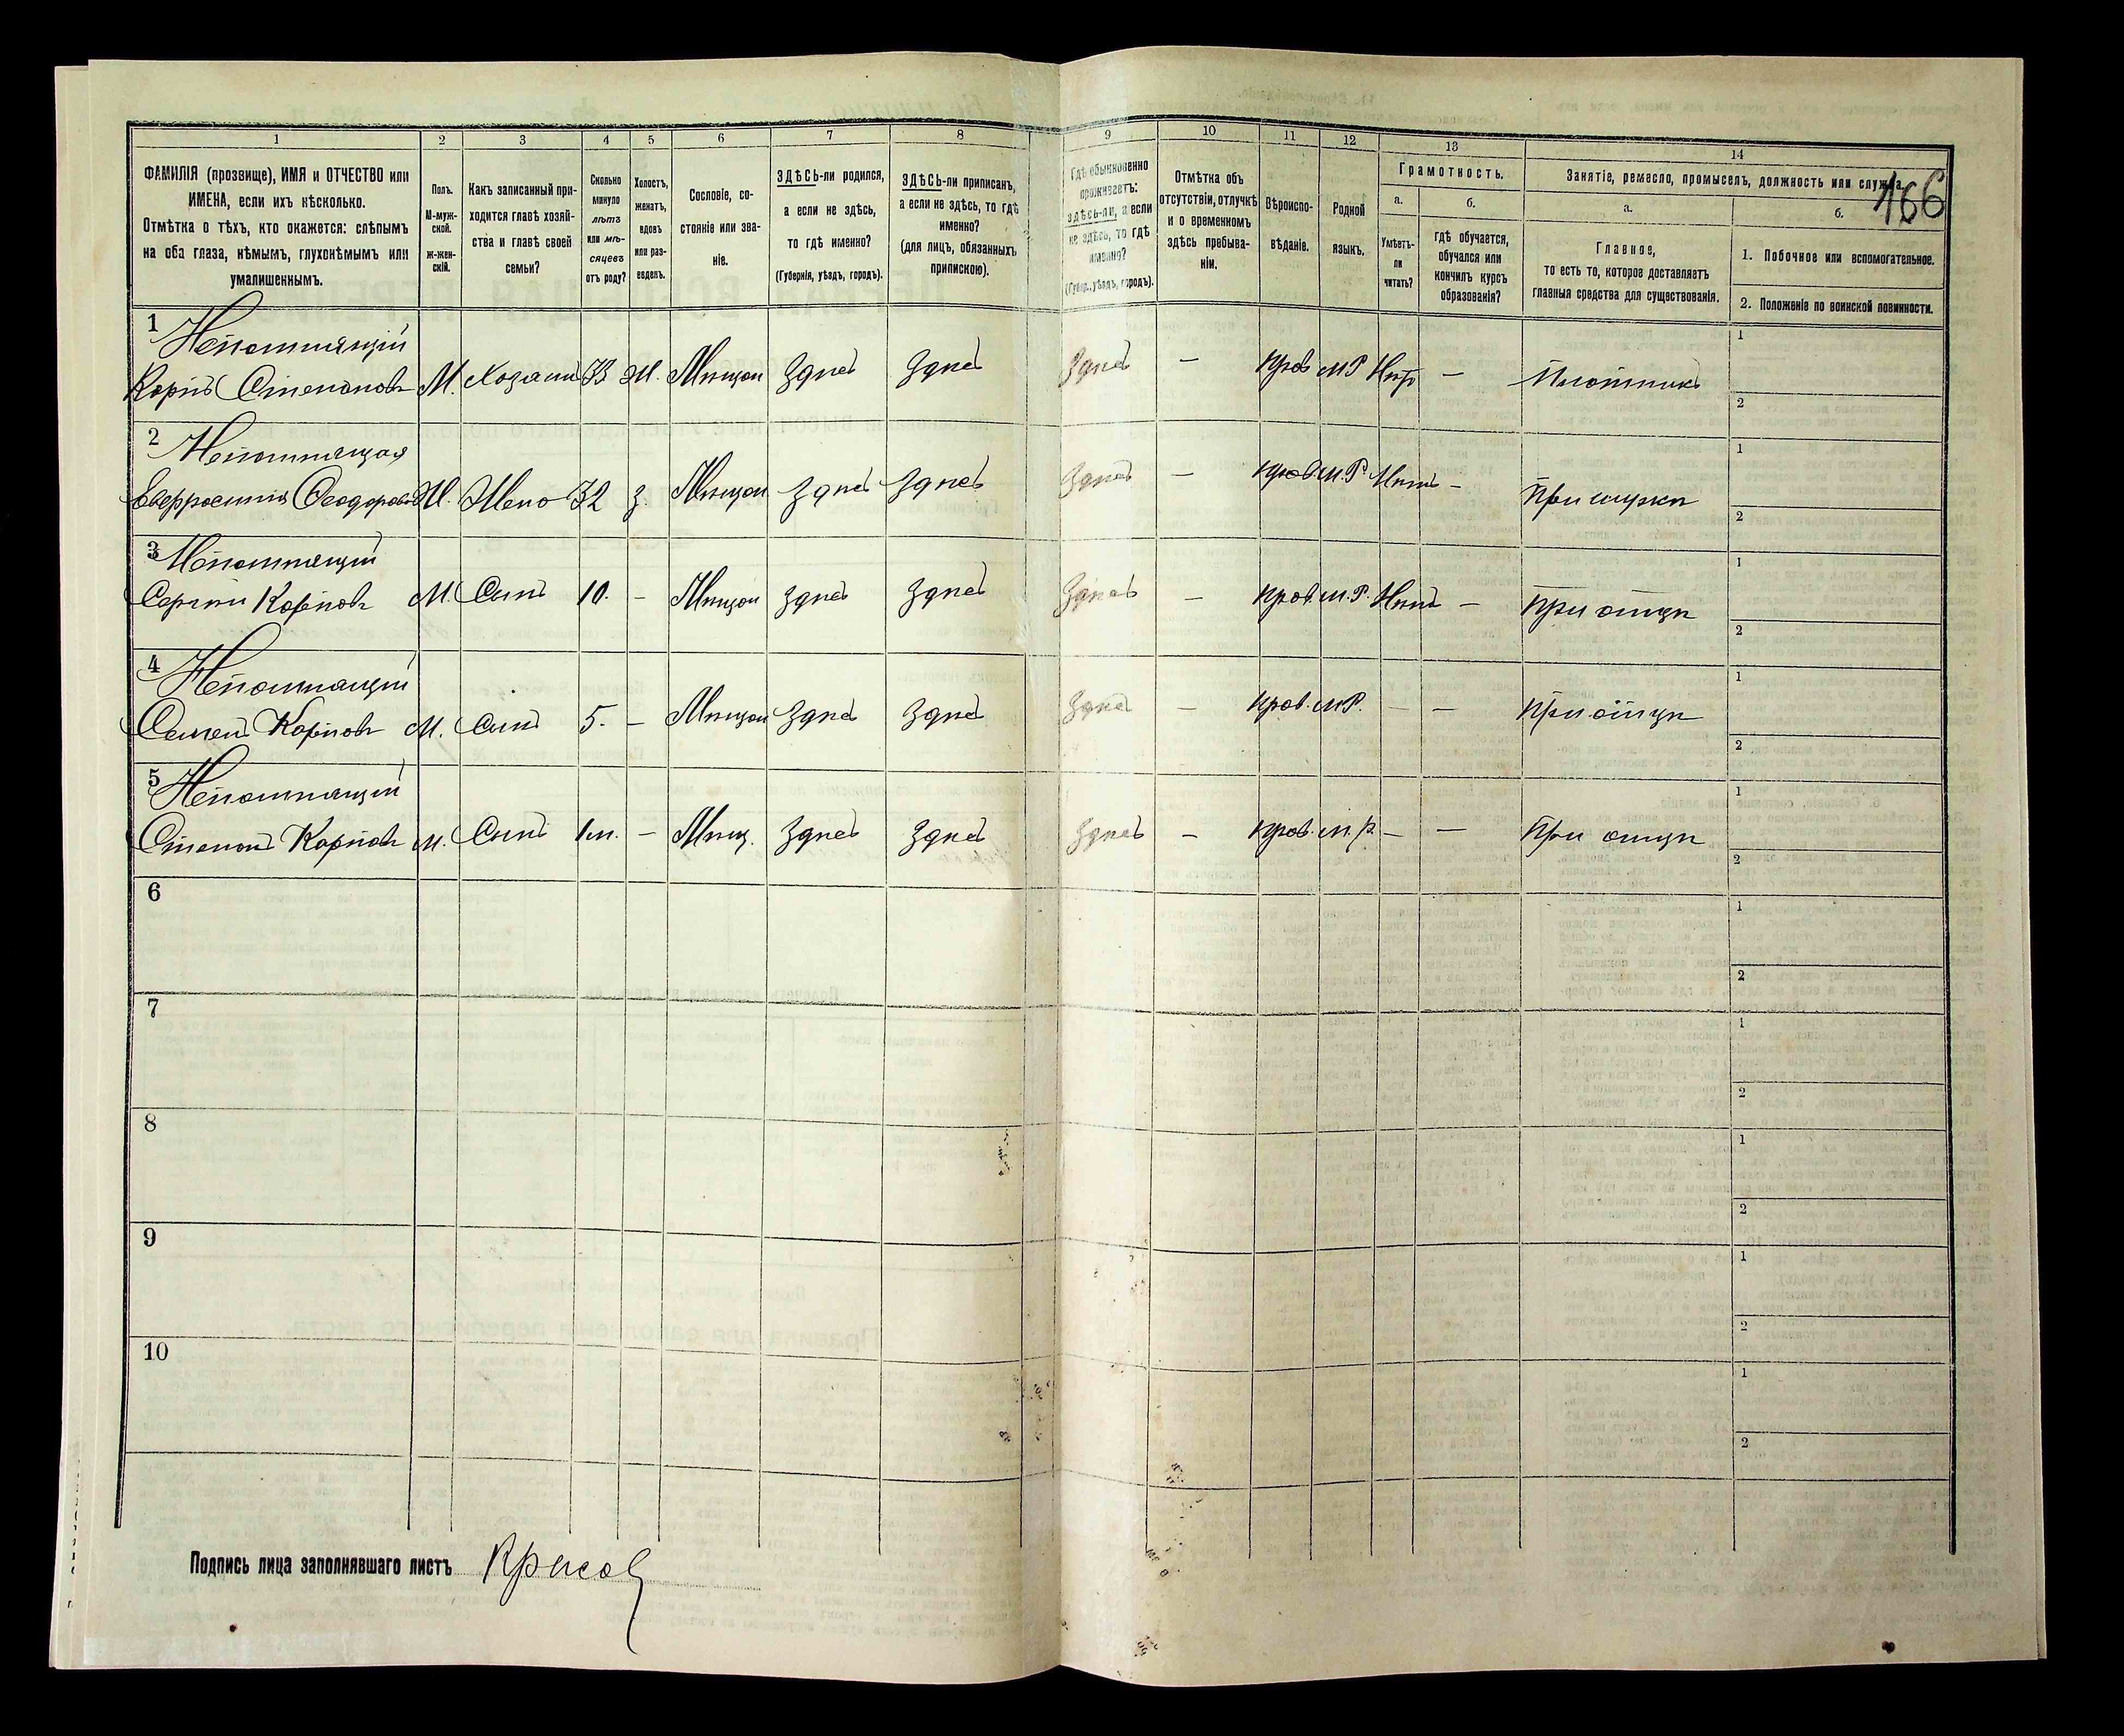 1 2 3 4 5 6 7 8 9 10 11 12 13 14
ФАМИЛІЯ (прозвище), ИМЯ и ОТЧЕСТВО или
ИМЕНА, если ихъ нѣсколько.
Отмѣтка о тѣхъ, кто окажется: слѣпымъ
на оба глаза, нѣмымъ, глухонѣмымъ или
умалишеннымъ.
Полъ.
М-муж-
ской.
ж-жен-
скій.
Какъ записанный при-
ходится главѣ хозяй-
ства и главѣ своей
семьи?
Сколько
минуло
лѣтъ
или мѣ-
сяцевъ
отъ роду?
Холостъ,
женатъ,
вдовъ
или раз-
веденъ.
Сословіе, со-
стояніе или зва-
ніе.
ЗДѢСЬ-ли родился,
а если не здѣсь,
то гдѣ именно?
(Губернія, уѣздъ, городъ).
ЗДѢСЬ-ли приписанъ,
а если не здѣсь, то гдѣ
именно?
(для лицъ, обязанныхъ
припискою).
Гдѣ обыкновенно
проживаетъ:
здѣсь-ли, а если
не здѣсь, то гдѣ
именно?
(Губер., уѣздъ, городъ).
Отмѣтка объ
отсутствіи, отлучкѣ
и о временномъ
здѣсь пребыва-
ніи.
Вѣроиспо-
вѣданіе.
Родной
языкъ.
Грамотность.
а.
Умѣетъ-
ли
читать?
б.
гдѣ обучается,
обучался или
кончилъ курсъ
образованія?
Занятіе, ремесло, промыселъ, должность или служба.
166
а.
Главное,
то есть то, которое доставляетъ
главныя средства для существованія.
б.
1. Побочное или вспомогательное.
2. Положеніе по воинской повинности.
1 Непомнящій 1
Карпъ Степановъ М. Хозяинъ 33 Ж. Мѣщан Здѣсь Здѣсь Здѣсь — Прав М Р Нѣтъ — Плотникъ
2
2 Непомнящая 1
Евфросинія Феодорова Ж. Жена 32 З. Мѣщан Здѣсь Здѣсь Здѣсь — Прав. М. Р. Нѣтъ — При мужѣ
2
3 Непомнящій 1
Сергѣй Карповъ М. Сынъ 10. — Мѣщан Здѣсь Здѣсь Здѣсь — Прав. М. Р. Нѣтъ — При отцѣ
2
4 Непомнящій 1
Семенъ Карповъ М. Сынъ 5. — Мѣщан Здѣсь Здѣсь Здѣсь — Прав. М Р. — — При отцѣ
2
5 Непомнящій 1
Степанъ Карповъ М. Сынъ 1 м. — Мѣщ. Здѣсь Здѣсь Здѣсь — Прав. м. р. — — При отцѣ
2
6 1
2
7 1
2
8 1
2
9 1
2
10 1
2
Подпись лица заполнявшаго листъ